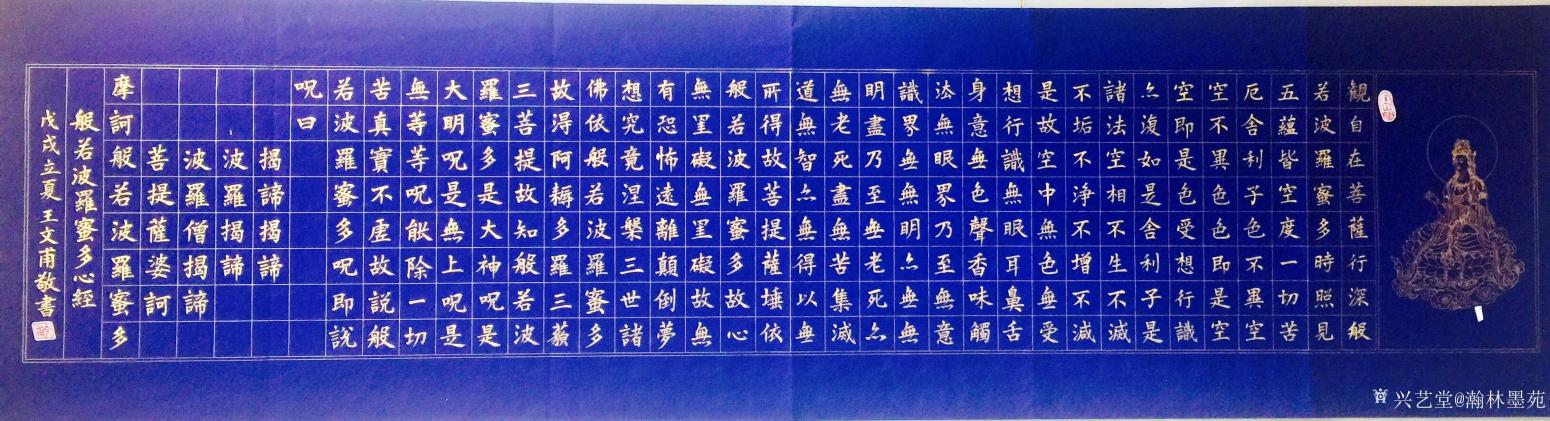 観自在菩薩行深般
若波羅蜜多時照見
五蘊皆空度一切苦
厄舍利子色不異空
空不異色色即是空
空即是色受想行識
亦復如是舍利子是
諸法空相不生不滅
不垢不浄不增不減
是故空中無色無受
想行識無眼耳鼻舌
身意無色聲香味觸
法無眼界乃至無意
識界無無明亦無無
明盡乃至無老死亦
無老死盡無苦集滅
道無智亦無得以無
所得故菩提薩埵依
般若波羅蜜多故心
無罣礙無罣礙故無
有恐怖遠離顛倒夢
想究竟涅槃三世諸
佛依般若波羅蜜多
故得阿耨多羅三藐
三菩提故知般若波
羅蜜多是大神呪是
大明呪是無上呪是
無等等呪能除一切
苦真實不虛故說般
若波羅蜜多呪即說
呪曰
揭諦揭諦
波羅揭諦
波羅僧揭諦
菩提薩婆訶
摩訶般若波羅蜜多
般若波羅蜜多心經
戊戌立夏王文甫敬書
兴艺堂@瀚林墨苑